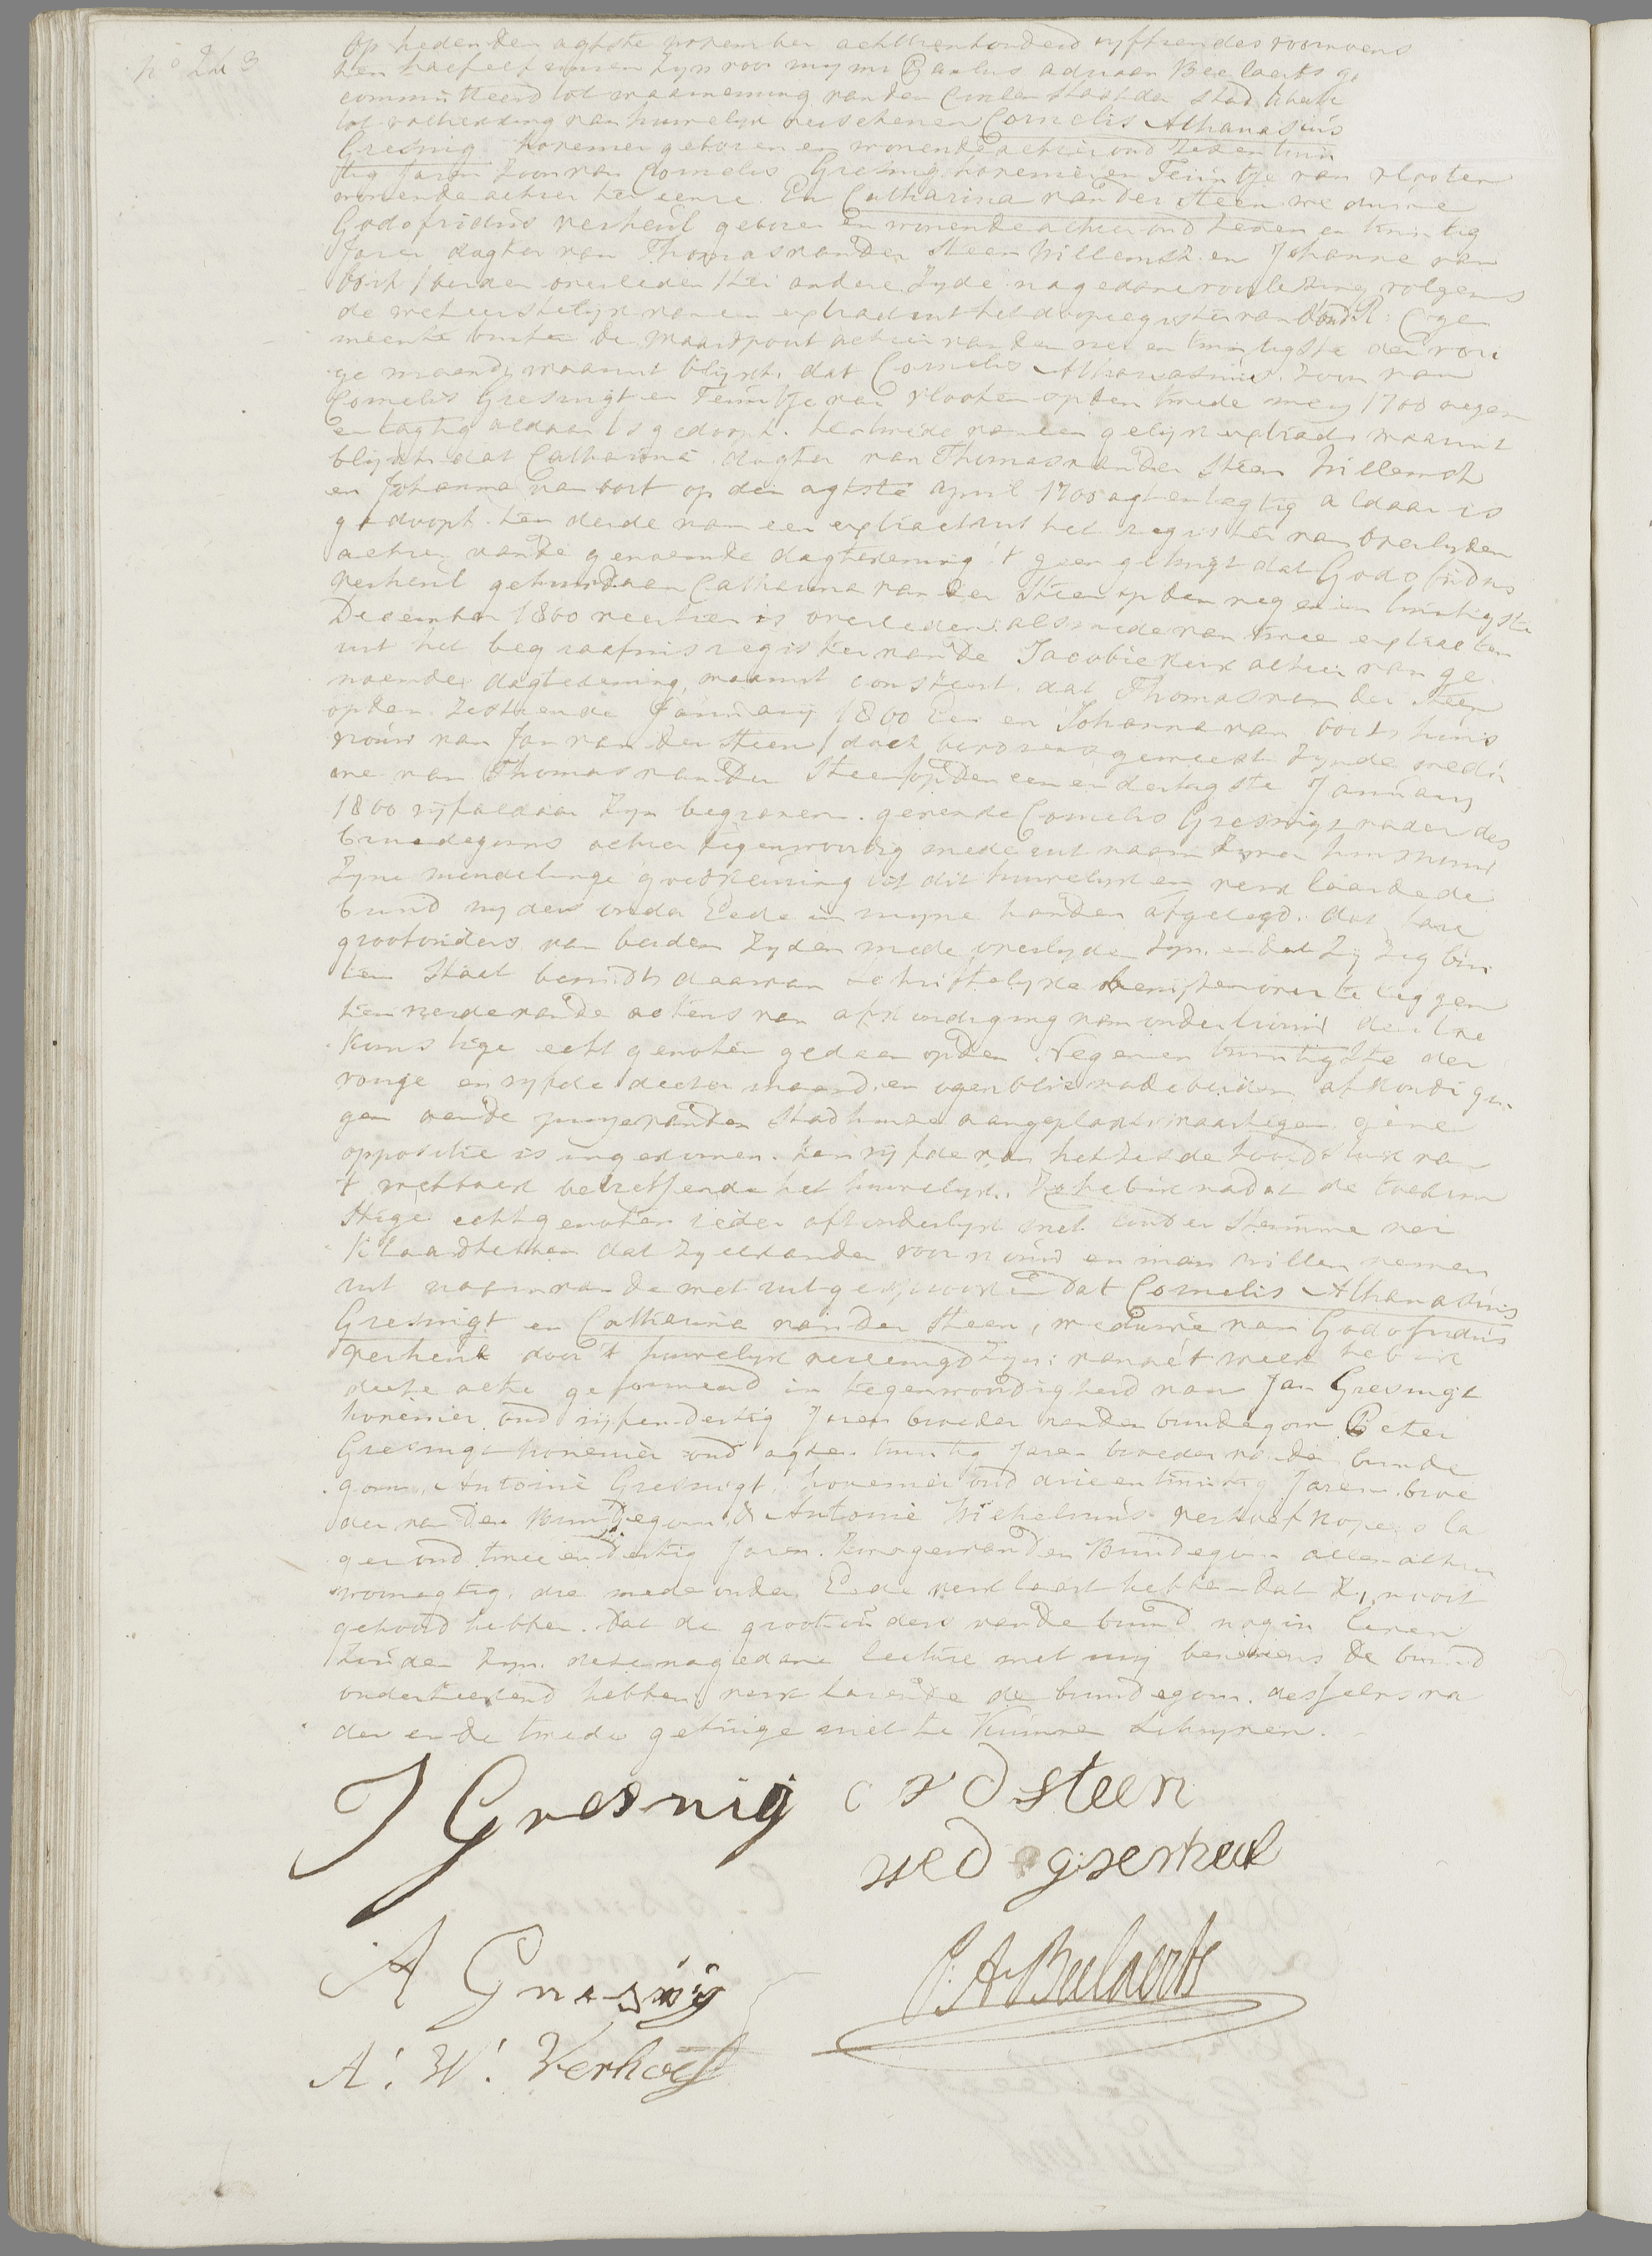 No 243
Op heden den agtste november achttienhonderd vyftien des voormidens
ten half elf uuren zyn voor my mr Paulus adriaan Beelaerts ge
committeerd tot waarneming van den Civielen Staat der Stad Utrecht
tot voltrekking van huwelyk verschenen Cornelis Athanasius
Gresnig hovenier geboren en wonende alhier oud zes en twin
tig jaren zoon van Cornelis Gresnig hovenier en Teuntje van vlooten
wonende alhier ter eenre. En Catharina van der Steen weduwe
Godofridus verheul geboren en wonende alhier oud zeven en twintig
Jaren dogter van Thomas van der Steen Willemsz: en Johanna van
bort / beiden overleden / ter andere zyde nagedane voorlezing volgens
de wet eerstelyk van een extract uit het doopregister van de R: C: ge
meente buiten de Waardpoort alhier van den zes en twintigste der vori
ge maand, waaruit blykt, dat Cornelis Athanasius zoon van
Cornelis Gresnigt en Teuntje van vlooten op den twede mey 1700 negen
en tagtig aldaar is gedoopt. ten twede van een gelyk extract waaruit
blykt dat Catharina dogter van Thomas van der Steen Willemsz
en Johanna van bort op den agtste april 1700 agt en tagtig aldaar is
gedoopt. ten derde van een extract uit het register van overlyden
alhier van de genoemde dagtekening 't geen getuigt dat Godofridus
verheul gehuwd aan Catharina van der Steen op den negen en twintigste
December 1800 veertien is overleden: alsmede van twee extracten
uit het begraafnis register van de Jacobie Kerk alhier van ge
noemde dagtekening, waaruit consteert, dat Thomas van der Steen
op den zestiende January 1800 Een en Johanna van bort, huis
vrouw van Jan van der Steen / doch bevorens geweest zynde wedu
we van Thomas van der Steen / op den een en dertigste January
1800 vyf aldaar zyn begraven. gevende Cornelis Gresnigt vader des
bruidegoms alhier tegenwoordig mede uit naam zyner huisvrouw
zyne mondelinge goedkeuring tot dit huwelyk en verklaarde de
bruid my der onder Eede in myne handen afgelegd: dat hare
grootouders van beiden zyden mede overlyden zyn. en dat zy zig bui
ten staat bevindt daarvan schriftelyke bewysen over te leggen
ten vierde van de actens van afkondiging van ondertrouw der toe
komstige echtgenoten gedaan op den Negen en twintigste der
vorige en vyfde dezer maand en ogenblik na de beiden afkondigin
gen aan de puye van den Stadhuize aangeplakt, waartegen geene
oppositie is ingekomen. ten vyfde van het zesde hoofdstuk van
't wetboek betreffende het huwelyk. Zo heb ik nadat de toekom
stige echtgenoten ieder afzonderlyk met luider stemme ver
klaard hebben dat zy elkander voor vrouw en man willen nemen
uit naam van de wet uitgesproken dat Cornelis Athanasius
Gresnigt en Catharina van der Steen, weduwe van Godofridus
verheul door 't huwelyk vereenigd zyn: van welk heb ik
deeze acte geformeerd in tegenwoordigheid van Jan Gresnigt
hovenier oud vyf en dertig jaren broeder van den bruidegom Peter
Gresnigt hovenier oud agt en twintig jaren broeder van den bruide
gom, Antonie Gresnigt, hovenier oud drie en twintig jaren broe
der van den bruidegom & Antonie Wilhelmus verhoef kopersla
ger oud twee en dertig jaren. zwager van den bruidegom allen alhier
woonagtig. die mede onder Eede verklaart hebben dat zy nooit
gehoord hebben. dat de grootouders van de bruid nog in leven
zouden zyn. deze nagedane lecture met my benevens de bruid
ondertekend hebben, verklarende de bruidegom. deszelfs va
der en de twede getuige niet te kunnen schryven.
J Gresnig c v d steen
wed g verheul
A Gresnig P. A. Beelaerts
A: W: Verhoef